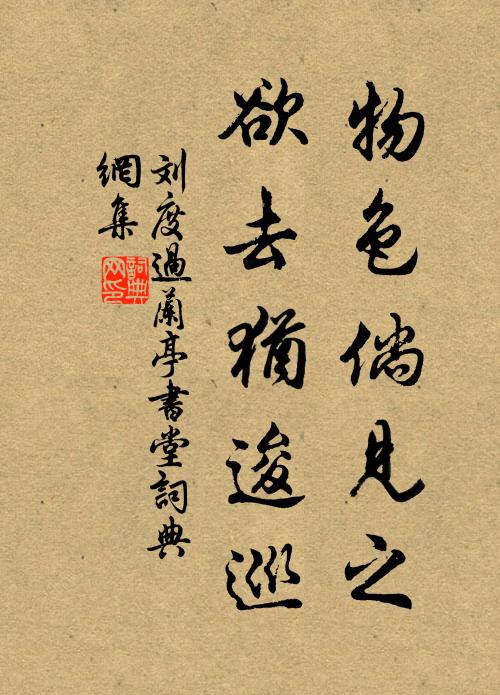 物色倘見之
欲去猶逡巡
刘度過蘭亭書堂詞典
網集
詞典網印